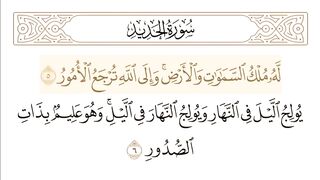 سُورَةُ الحَدِيدِ
لَّهُۥ مُلۡكُ ٱلسَّمَٰوَٰتِ وَٱلۡأَرۡضِۚ وَإِلَى ٱللَّهِ تُرۡجَعُ ٱلۡأُمُورُ ٥
يُولِجُ ٱلَّيۡلَ فِي ٱلنَّهَارِ وَيُولِجُ ٱلنَّهَارَ فِي ٱلَّيۡلِۚ وَهُوَ عَلِيمُۢ بِذَاتِ
ٱلصُّدُورِ ٦